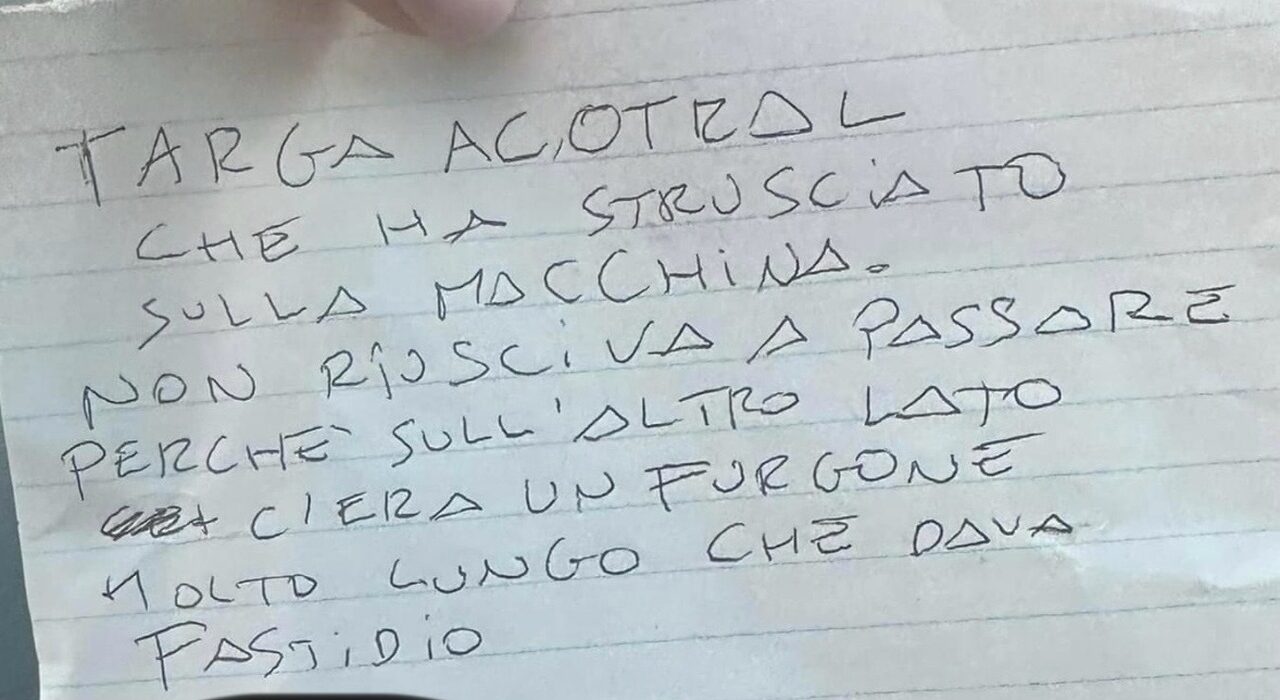 TARGA ACOTRAL
CHE HA STRUSCIATO
SULLA MACCHINA.
NON RIUSCIVA A PASSARE
PERCHE` SULL'ALTRO LATO
C'ERA UN FURGONE
MOLTO LUNGO CHE DAVA
FASTIDIO